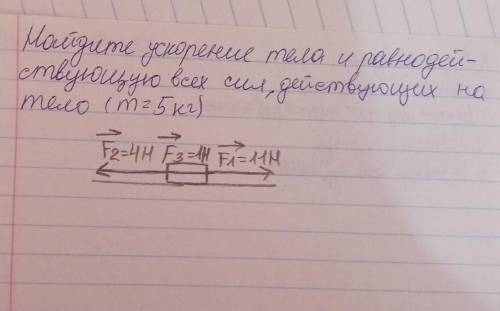 Найдите ускорение тела и равнодей-
ствующую всех сил, действующих на
тело (m=5кг)
F₂=4Н F₃=1Н F₁=11Н